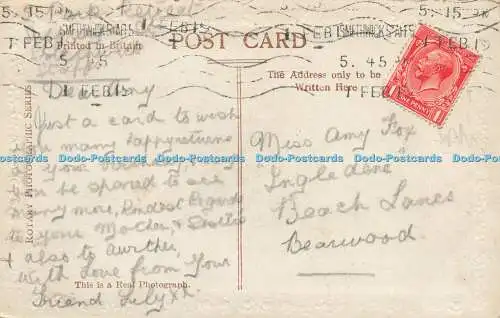 SMETHWICK STAFFS
5. 45 PM
1 FEB 15
Printed in Britain
POST CARD
The Address only to be
Written Here
ONE PENNY
ROTARY PHOTOGRAPHIC SERIES
Dear Amy
Just a card to wish
you many happy returns
of your Birthday, may
you be spared to see
many more, Kindest Regards
to your Mother, &
& also to Arther,
with Love from Your
Friend Lily xx
This is a Real Photograph.
Miss Amy Fox
"Ingledene"
Beach Lanes
Bearwood
Dodo-Postcards Dodo-Postcards Dodo-Postcards Dodo-Postcards Dodo-Postcards Dodo-Postcards
Dodo-Postcards Dodo-Postcards Dodo-Postcards Dodo-Postcards Dodo-Postcards Dodo-Postcards